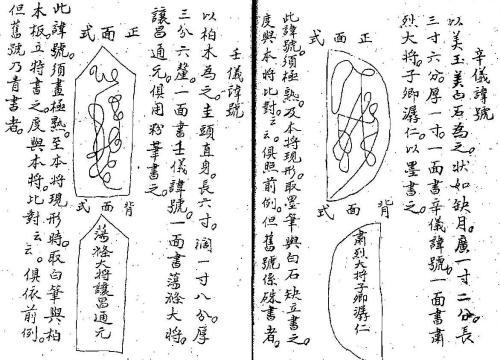 辛儀諱號
以美玉美白石為之。狀如缺月。廣一寸二分。長
三寸六分。厚一寸。一面書辛儀諱號。一面書肅
烈大将子卿潺仁。以墨書之。
正面式
背面式
肅烈大将子卿潺仁
此諱號須畫極熟。及本将現形。取墨筆與白石缺立書之。
度與本将比對云云。俱照前例。但舊號係硃書者。
壬儀諱號
以柏木為之。圭頭直身。長六寸。濶一寸八分。厚
三分六釐。一面書壬儀諱號。一面書蕩滌大将
讓昌通元。俱用粉筆書之。
正面式
背面式
蕩滌大将讓昌通元
此諱號須畫極熟。至本将現形時。取白筆與柏
木板立将書之。度與本将。比對云云。俱依前例。
但舊號乃青書者。